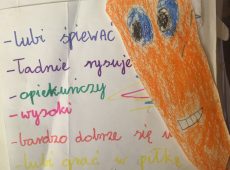 -lubi śpiewać
-ładnie rysuje
-opiekuńczy
-wysoki
-bardzo dobrze się u
-lubi grać w piłkę